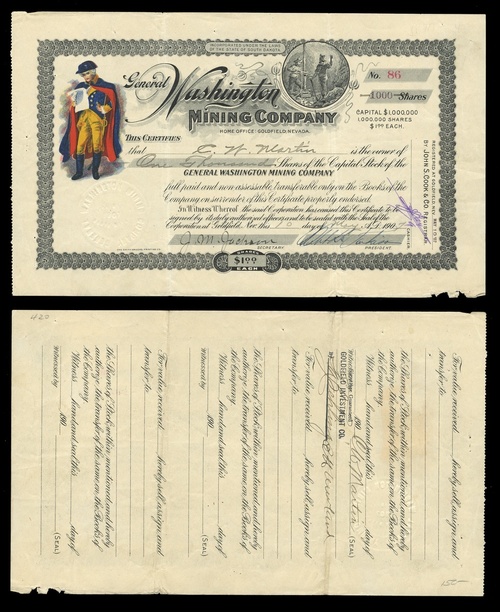 INCORPORATED UNDER THE LAWS
OF THE STATE OF SOUTH DAKOTA
General
Washington
MINING COMPANY
HOME OFFICE: GOLDFIELD, NEVADA.
No. 86
1000 Shares
CAPITAL $1,000,000
1,000,000 SHARES
$1.00 EACH.
THIS CERTIFIES
that C. W. Martin is the owner of
One Thousand Shares of the Capital Stock of the
GENERAL WASHINGTON MINING COMPANY
full paid and non-assessable transferable only on the Books of the
Company on surrender of this Certificate properly endorsed.
In Witness Whereof the said Corporation has caused this Certificate to be
signed by its duly authorized officers and to be sealed with the Seal of the
Corporation at Goldfield, Nev. this 10 day of May A.D. 1907
SECRETARY.
PRESIDENT
SHARES
$1.00
EACH
JOHN S. COOK & CO. REGISTRAR
CASHIER.
420
For value received hereby sell, assign and
transfer to
the Shares of Stock within mentioned and hereby
authorize the transfer of the same on the Books of
the Company.
Witness hand and seal this day of
190
Witnessed by (SEAL)
For value received hereby sell, assign and
transfer to
the Shares of Stock within mentioned and hereby
authorize the transfer of the same on the Books of
the Company.
Witness hand and seal this day of
190
Witnessed by (SEAL)
For value received hereby sell, assign and
transfer to
the Shares of Stock within mentioned and hereby
authorize the transfer of the same on the Books of
the Company.
Witness hand and seal this day of
190
C. W. Martin (SEAL)
GOLDFIELD INVESTMENT CO.
BY